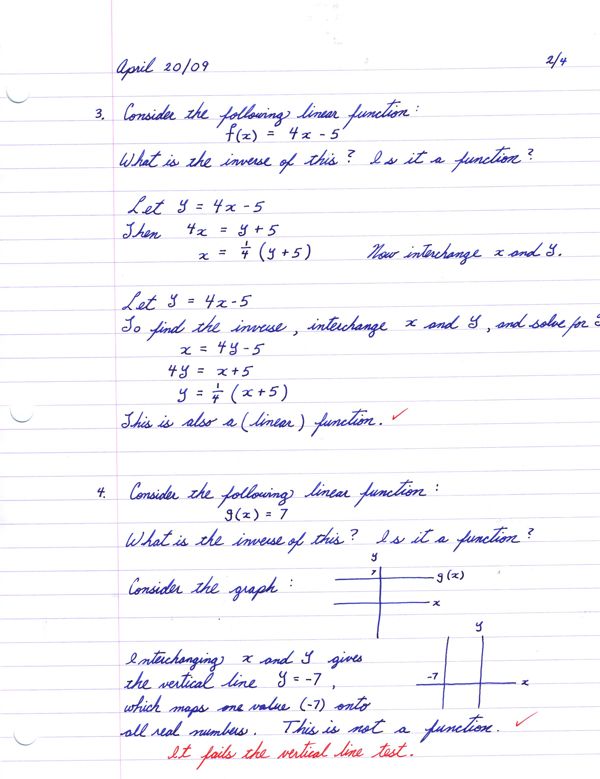 April 20/09 2/4
3. Consider the following linear function :
f(x) = 4x - 5
What is the inverse of this? Is it a function?
Let y = 4x - 5
Then 4x = y + 5
x = 1/4 (y + 5) Now interchange x and y.
Let y = 4x - 5
To find the inverse, interchange x and y, and solve for y
x = 4y - 5
4y = x + 5
y = 1/4 (x + 5)
This is also a (linear) function. ✓
4. Consider the following linear function :
g(x) = 7
What is the inverse of this? Is it a function?
Consider the graph :
y
7
g(x)
x
y
-7
x
Interchanging x and y gives
the vertical line y = -7,
which maps one value (-7) onto
all real numbers. This is not a function. ✓
It fails the vertical line test.